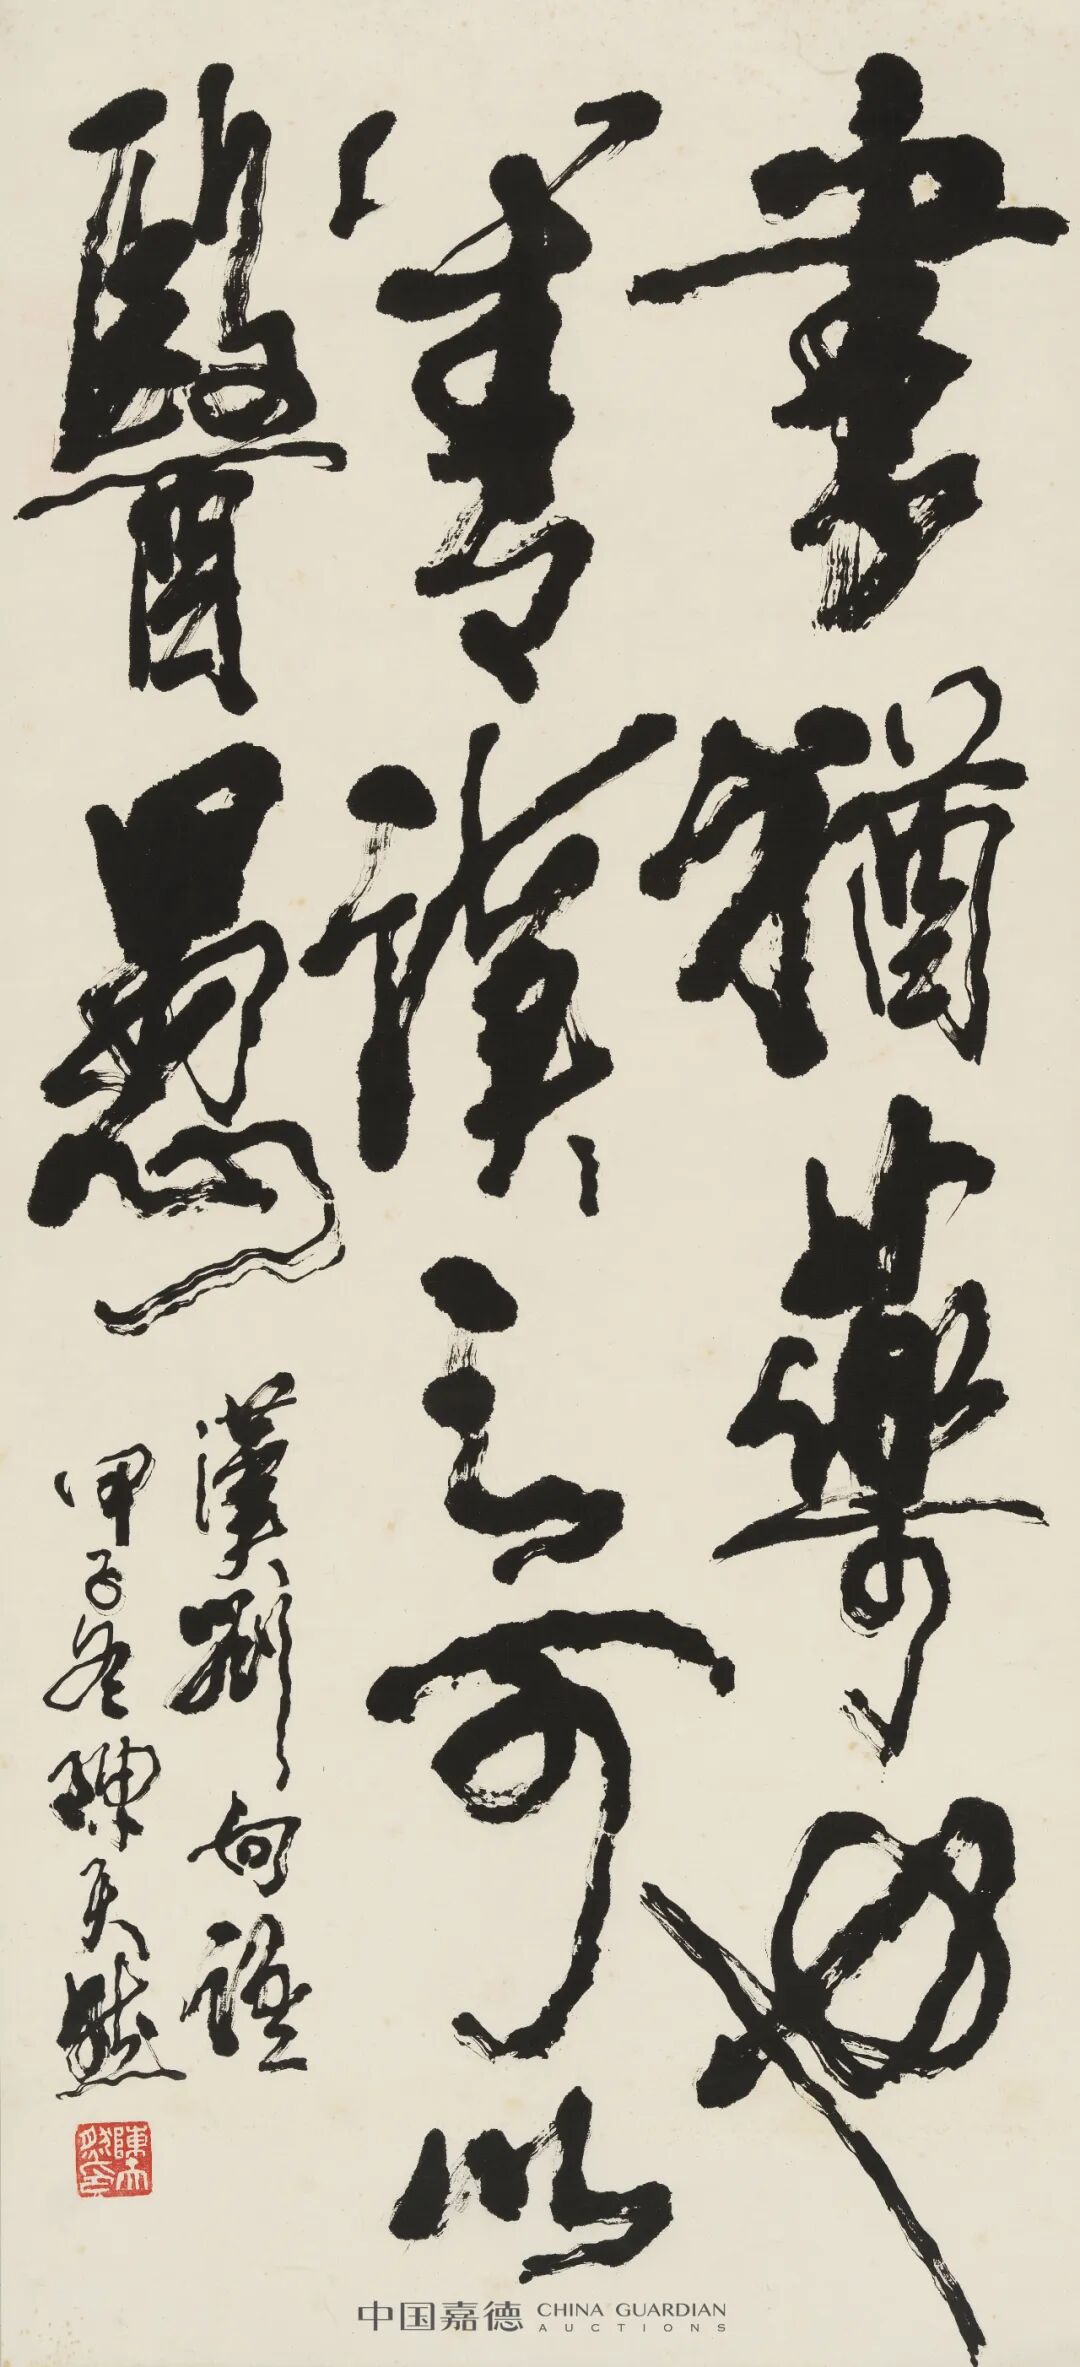 書猶藥也
善讀之可以
醫愚
漢劉向語
甲子冬陳天然
陳天然印
中国嘉德 CHINA GUARDIAN
AUCTIONS